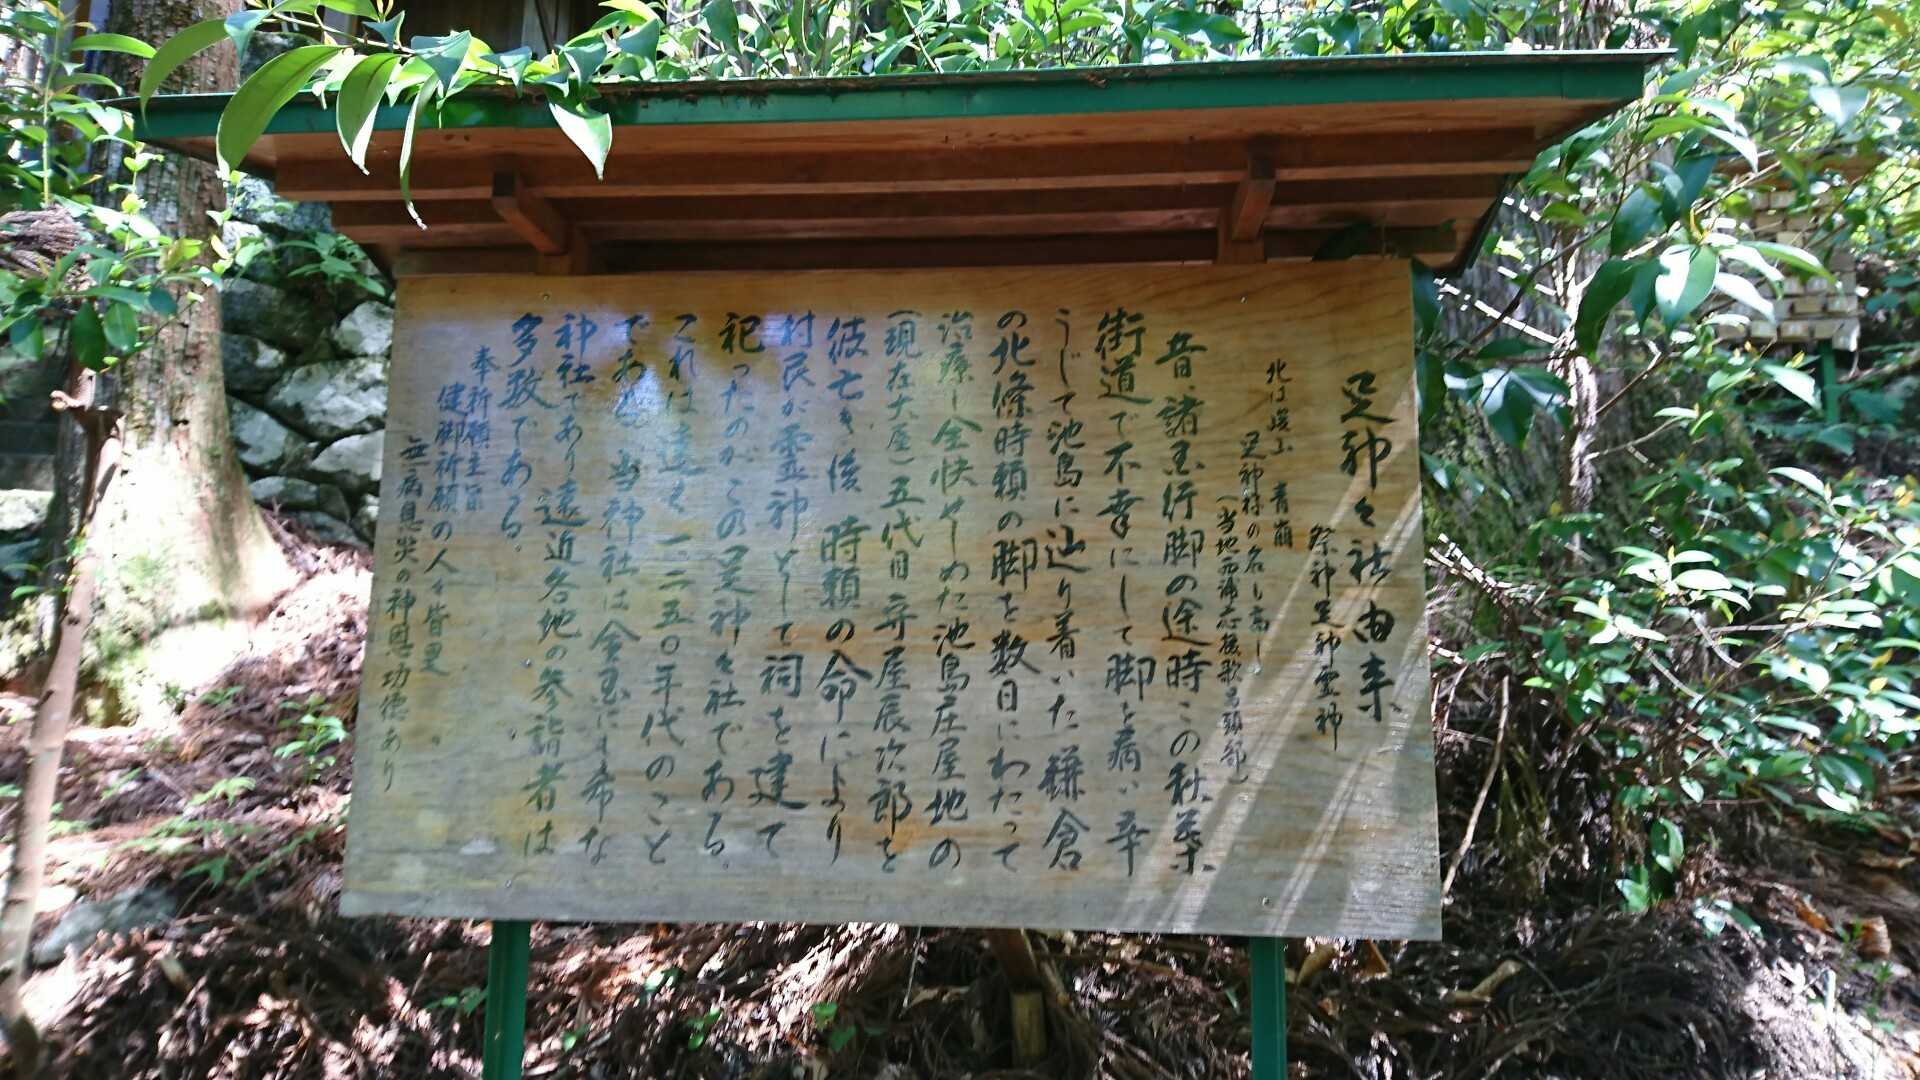 足神々社由来
祭神足神霊神
北は遠山 青崩
足神様の名も高し
(当地西浦芯援歌呂頭部)
昔、諸国行脚の途時この秋葉
街道で不幸にして脚を病い辛
うじて池島に辿り着いた鎌倉
の北條時頼の脚を数日にわたって
治療し全快せしめた池島庄屋地の
(現在大屋)五代目守屋辰次郎を
彼亡き後 時頼の命により
村民が霊神として祠を建て
祀ったのがこの足神々社である。
これは遠く一二五〇年代のこと
である。当神社は全国にも希な
神社であり遠近各地の参詣者は
多数である。
奉祈願主旨
健脚祈願の人々皆是
無病息災の神恩功徳あり